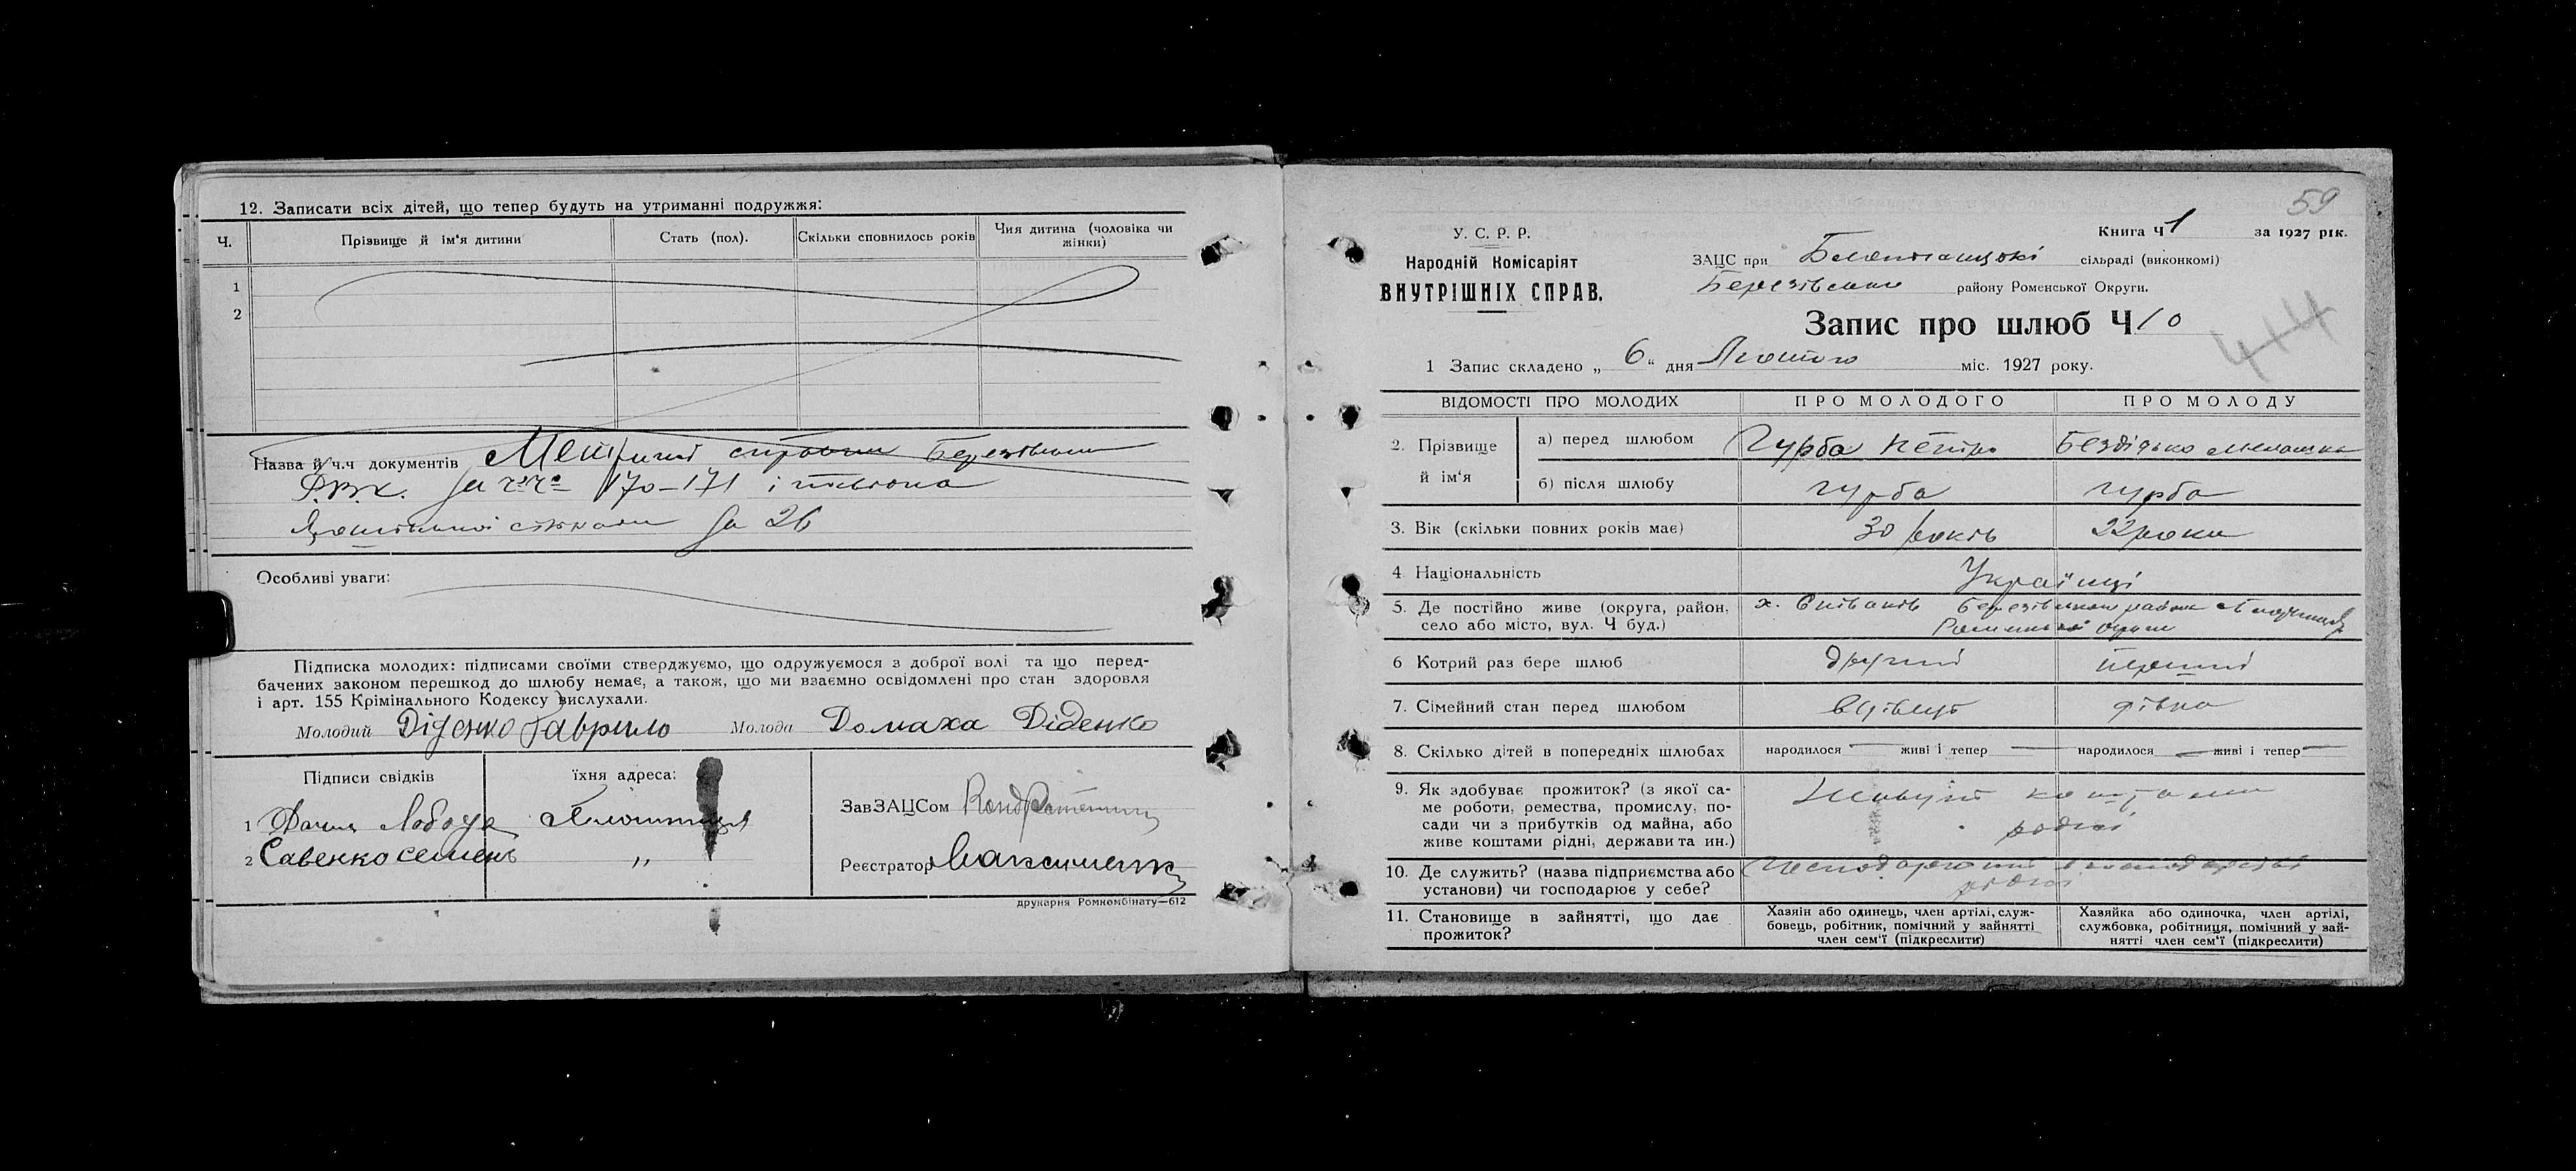 12. Записати всіх дітей, що тепер будуть на утриманні подружжя:
Ч.
Прізвище й ім'я дитини
Стать (пол).
Скільки сповнилось років
Чия дитина (чоловіка чи жінки)
1
2
Назва й ч.ч документів Метричні справки Березівського
Р.В.К. за ч.ч. 170—171 і
за 26
Особливі уваги:
Підписка молодих: підписами своїми стверджуємо, що одружуємося з доброї волі та що перед-
бачених законом перешкод до шлюбу немає, а також, що ми взаємно освідомлені про стан здоровля
і арт. 155 Крімінального Кодексу вислухали.
Молодий Діденко Гаврило Молода Домаха Діденко
Підписи свідків
їхня адреса:
1 Лобода
2 Савенко Семень "
ЗавЗАЦСом
Реєстратор
друкарня Ромкомбінату—612
59
У. С. Р. Р.
Народній Комісаріят
ВНУТРІШНІХ СПРАВ.
Книга Ч 1 за 1927 рік.
ЗАЦС при сільраді (виконкомі)
Березівського району Роменської Округи.
Запис про шлюб Ч 10
414
1 Запис складено „ 6 “ дня Лютого міс. 1927 року.
ВІДОМОСТІ ПРО МОЛОДИХ
ПРО МОЛОДОГО
ПРО МОЛОДУ
2. Прізвище й ім'я
а) перед шлюбом
Гурба Петро
Бездідько Мелашка
б) після шлюбу
Гурба
Гурба
3. Вік (скільки повних років має)
30 років
22 роки
4 Національність
Українці
5. Де постійно живе (округа, район,
село або місто, вул. Ч буд.)
х. Співаків Березівського району
Роменської округи
6 Котрий раз бере шлюб
другий
перший
7. Сімейний стан перед шлюбом
вдівець
дівка
8. Скілько дітей в попередніх шлюбах
народилося — живі і тепер —
народилося — живі і тепер —
9. Як здобуває прожиток? (з якої са-
ме роботи, ремества, промислу, по-
сади чи з прибутків од майна, або
живе коштами рідні, держави та ин.)
Живуть коштами
рідні
10. Де служить? (назва підприємства або
установи) чи господарює у себе?
рідні
11. Становище в зайнятті, що дає
прожиток?
Хазяін або одинець, член артілі, служ-
бовець, робітник, помічний у зайнятті
член сем'ї (підкреслити)
Хазяйка або одиночка, член артілі,
службовка, робітниця, помічний у зай-
нятті член сем'ї (підкреслити)